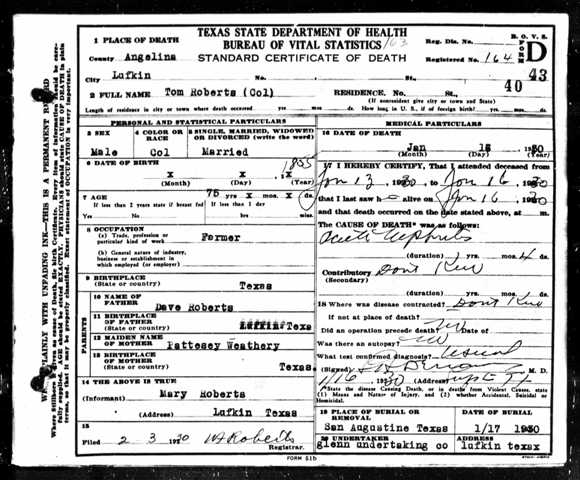 TEXAS STATE DEPARTMENT OF HEALTH
BUREAU OF VITAL STATISTICS
STANDARD CERTIFICATE OF DEATH
B. O. V. S.
FORM D
Reg. Dis. No.
Registered No. 164
43
40
1 PLACE OF DEATH
County Angelina
City Lufkin No. St.,
2 FULL NAME Tom Roberts (Col) RESIDENCE. No. St.,
(If nonresident give city or town and State)
Length of residence in city or town where death occurred yrs mos ds. How long in U. S., if of foreign birth? yrs. mos. ds.
PERSONAL AND STATISTICAL PARTICULARS
3 SEX
Male
4 COLOR OR RACE
Col
5 SINGLE, MARRIED, WIDOWED OR DIVORCED (write the word)
Married
6 DATE OF BIRTH 1855
x x x
(Month) (Day) (Year)
7 AGE 75 yrs x mos. x ds
If less than 2 years state if breast fed If less than 1 day
Yes No hrs. min
8 OCCUPATION
(a) Trade, profession or particular kind of work Farmer
(b) General nature of industry, business or establishment in which employed (or employer)
9 BIRTHPLACE
(State or country) Texas
PARENTS
10 NAME OF FATHER Dave Roberts
11 BIRTHPLACE OF FATHER
(State or country) Lufkin Texs
12 MAIDEN NAME OF MOTHER Pattesey Weathery
13 BIRTHPLACE OF MOTHER
(State or country) Texas
14 THE ABOVE IS TRUE
(Informant) Mary Roberts
(Address) Lufkin Texas
15
Filed 2 3 1930 Registrar.
MEDICAL PARTICULARS
16 DATE OF DEATH
Jan 1930
(Month) (Day) (Year)
17 I HEREBY CERTIFY, That I attended deceased from
Jan 13, 1930 to Jan 16, 1930
that I last saw h alive on Jan 16, 1930
and that death occurred on the date stated above, at m.
The CAUSE OF DEATH* was as follows:
Acute Nephritis
(duration) yrs. mos. 4 ds.
Contributory Dont Know
(Secondary)
(duration) yrs. mos. ds.
18 Where was disease contracted? Dont Know
If not at place of death?
Did an operation precede death? No Date of
Was there an autopsy? No
What test confirmed diagnosis? Usual
(Signed) M. D.
1/16 1930 (Address)
*State the disease Causing Death, or in deaths from Violent Causes, state (1) Means and Nature of Injury, and (2) whether Accidental, Suicidal or Homicidal.
19 PLACE OF BURIAL OR REMOVAL
San Augustine Texas
DATE OF BURIAL
1/17 1930
20 UNDERTAKER
glenn undertaking co
ADDRESS
lufkin texax